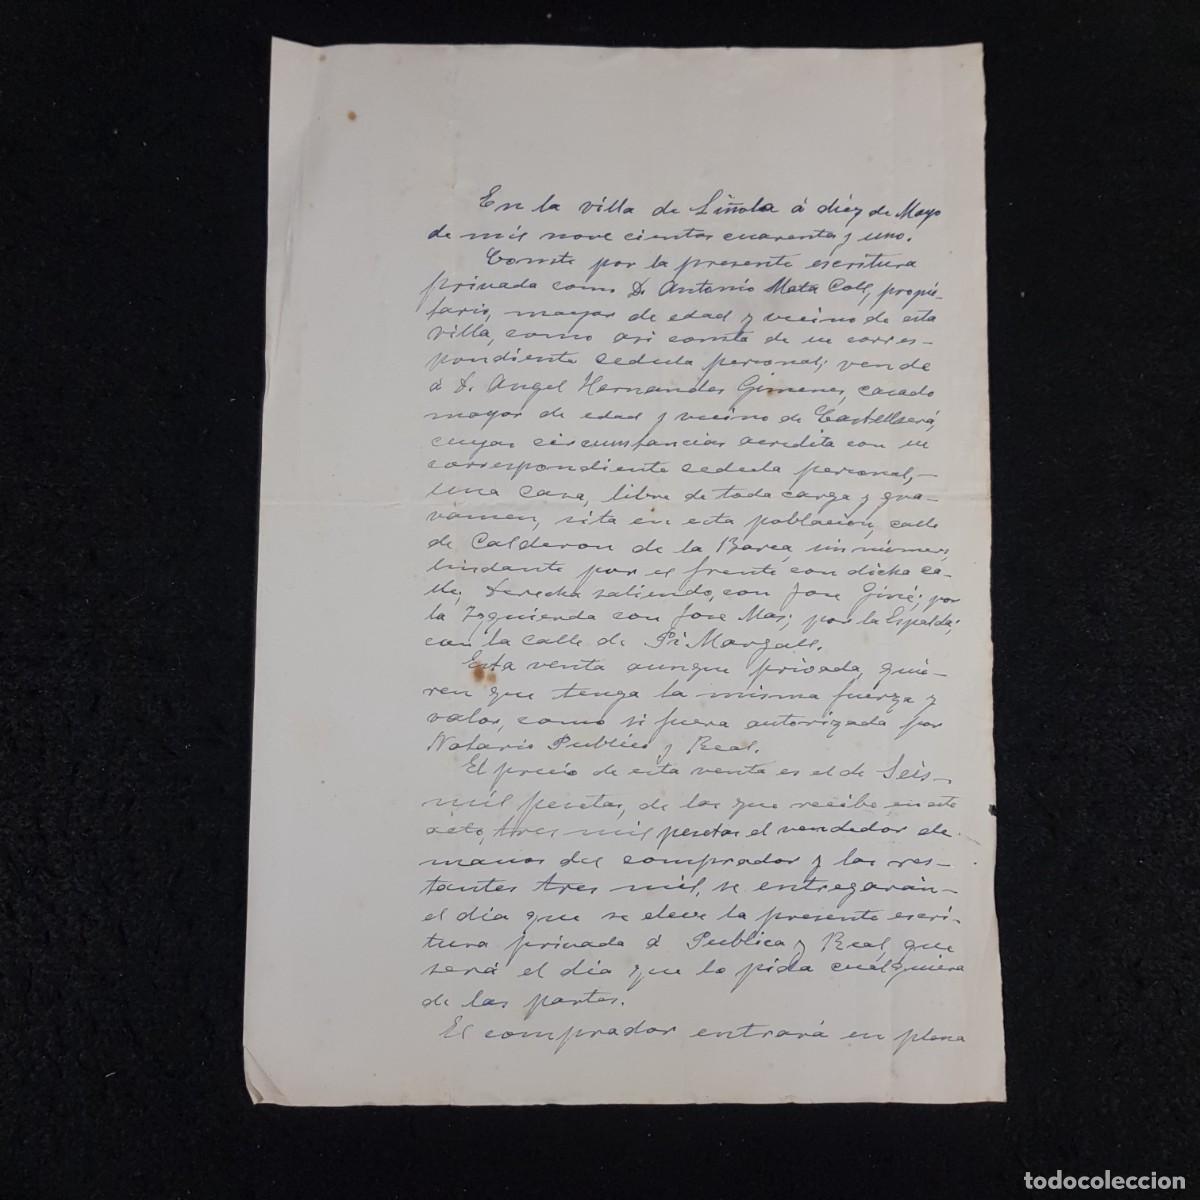 En la villa de Liñola á diez de Mayo
de mil nove cientos cuarenta y uno.
Conste por la presente escritura
privada como D. Antonio Mata Coll, propie-
tario, mayor de edad y vecino de esta
villa, como asi consta de su corres-
pondiente cedula personal; vende
á D. Angel Hernandes Gimenes, casado
mayor de edad y vecino de Castellserá,
cuyas circumstancias acredita con su
correspondiente cedula personal,-
una casa, libre de toda carga y gra-
vámen, sita en esta poblacion, calle
de Calderon de la Barca, sin número,
lindante por el frente con dicha ca-
lle; Derecha saliendo, con Jose Giné; por
la Izquierda con Jose Mas; por la Espalda;
con la calle de Pi Margall.
Esta venta aunque privada, quie-
ren que tenga la misma fuerza y
valor, como si fuera autorizada por
Notario Publico y Real.
El precio de esta venta es el de Seis-
mil pesetas, de las que recibe en este
acto, tres mil pesetas el vendedor de
manos del comprador y las res-
tantes tres mil, se entregarán-
el dia que se eleve la presente escri-
tura privada á Publica y Real, que
será el dia que lo pida cualquiera
de las partes.
El comprador entrará en plena
todocoleccion